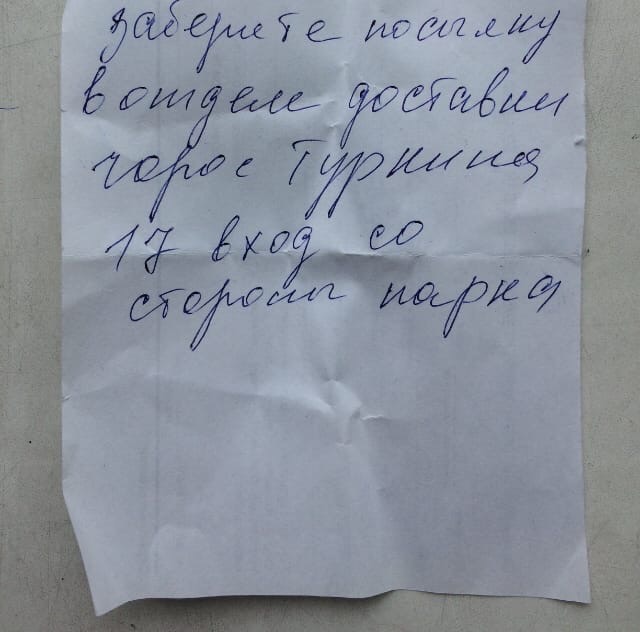 заберите посылку
в отделе доставки
Чорос Гуркина
17 вход со
стороны парка